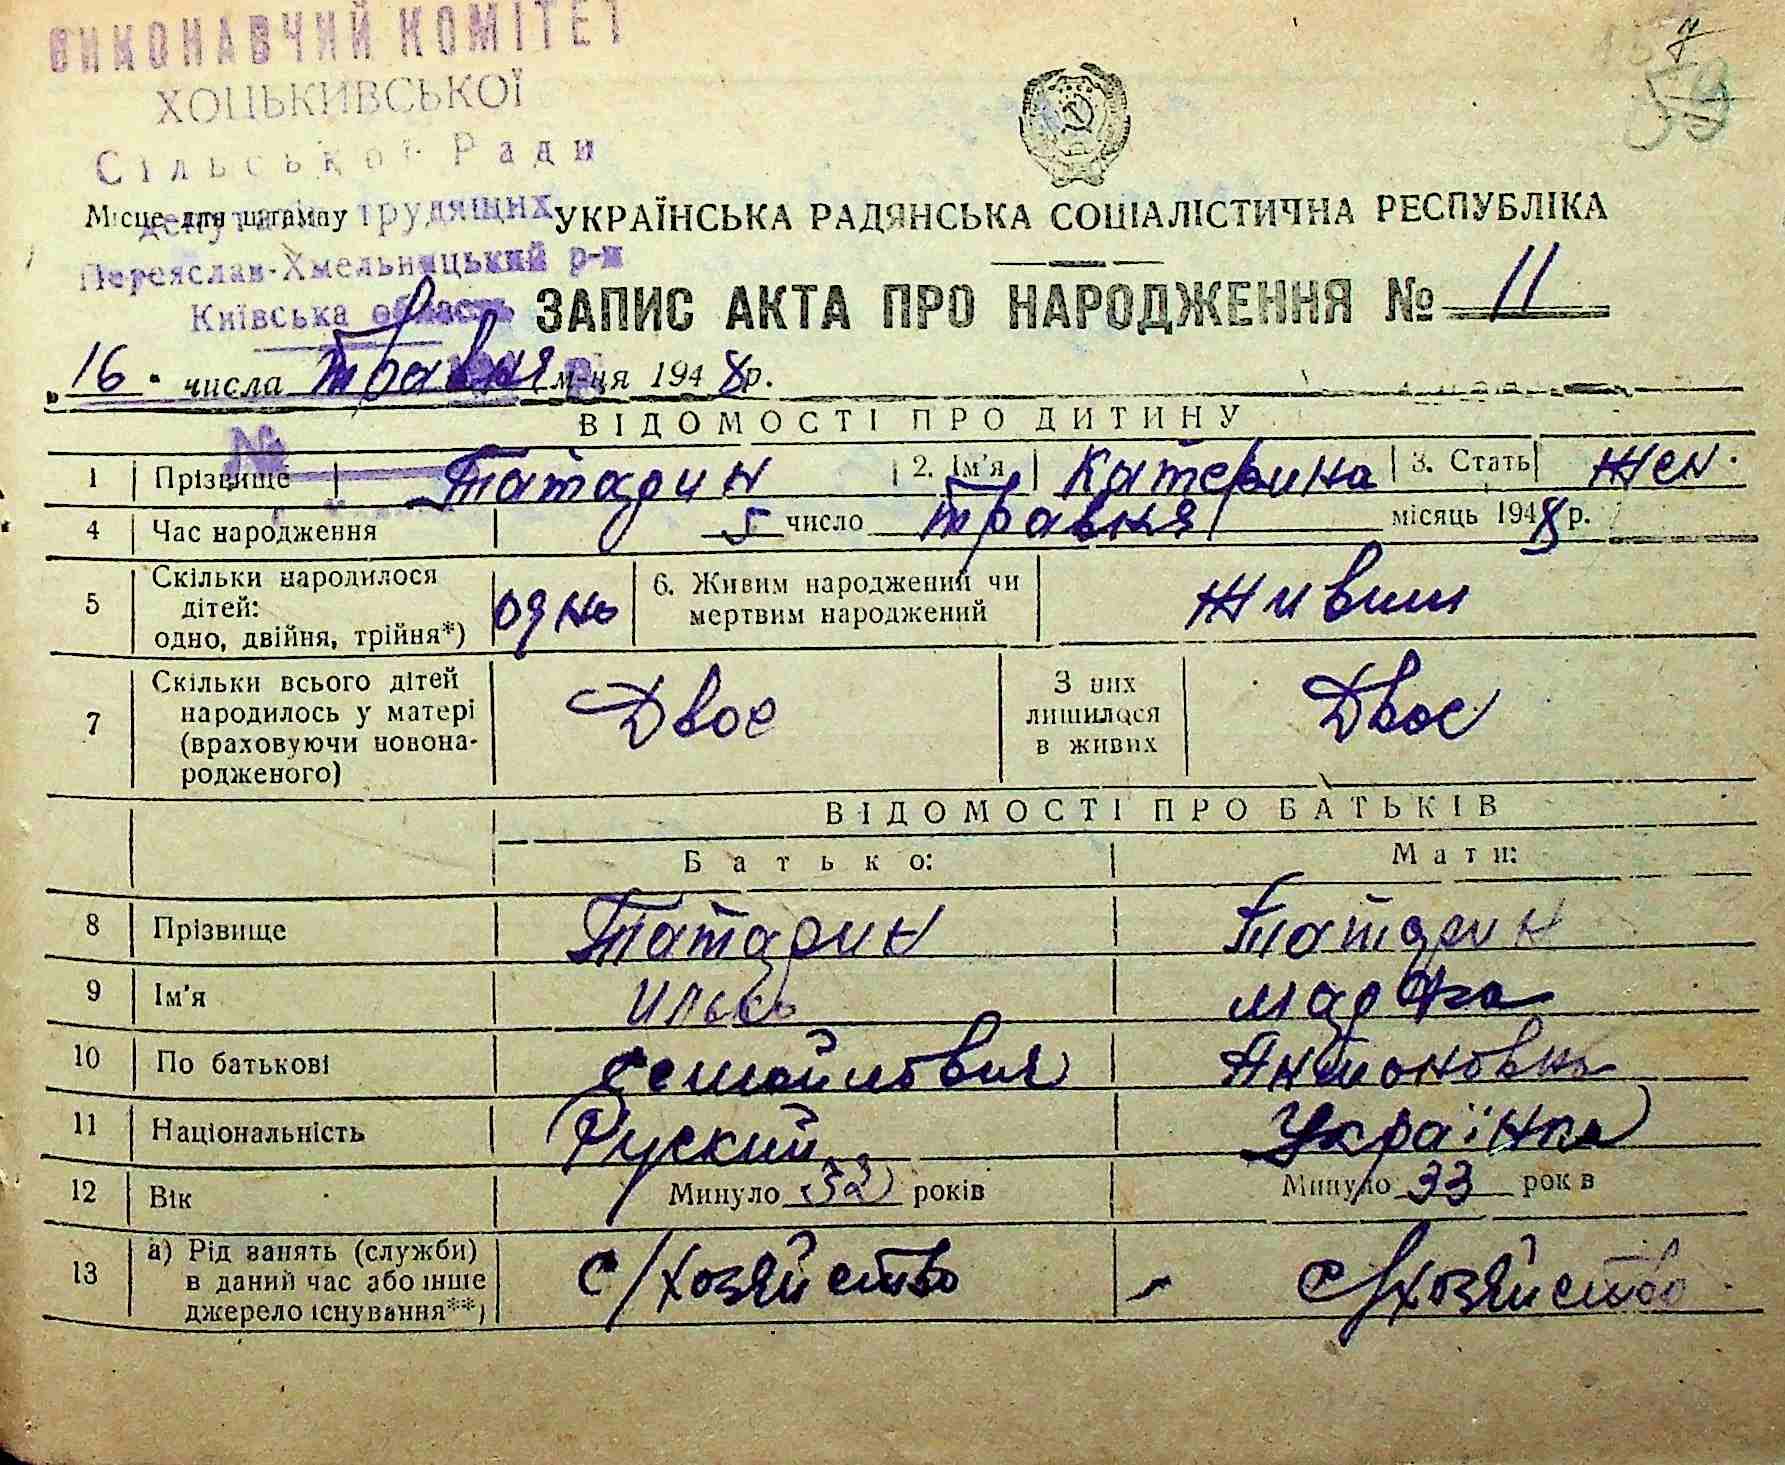 ВИКОНАВЧИЙ КОМІТЕТ
ХОЦЬКИВСЬКОЇ
Сільської Ради
депутатів трудящих
Переяслав-Хмельницький р-н
Київська область
Місце для штампу
59
УКРАЇНСЬКА РАДЯНСЬКА СОЦІАЛІСТИЧНА РЕСПУБЛІКА
ЗАПИС АКТА ПРО НАРОДЖЕННЯ № 11
„16" числа травня м-ця 1948 р.
№
ВІДОМОСТІ ПРО ДИТИНУ
1 Прізвище Татарин 2. Ім'я Катерина 3. Стать жен.
4 Час народження 5 число травня місяць 1948 р.
5 Скільки народилося дітей: одно, двійня, трійня*) одно 6. Живим народжений чи мертвим народжений живим
7 Скільки всього дітей народилось у матері (враховуючи новонародженого) Двоє З них лишилося в живих Двоє
ВІДОМОСТІ ПРО БАТЬКІВ
Батько: Мати:
8 Прізвище Татарин Татарин
9 Ім'я Илько Марфа
10 По батькові Антоновна
11 Національність Руский Українка
12 Вік Минуло 32 років Минуло 33 років
13 а) Рід занять (служби) в даний час або інше джерело існування**) с/хозяйство с/хозяйство